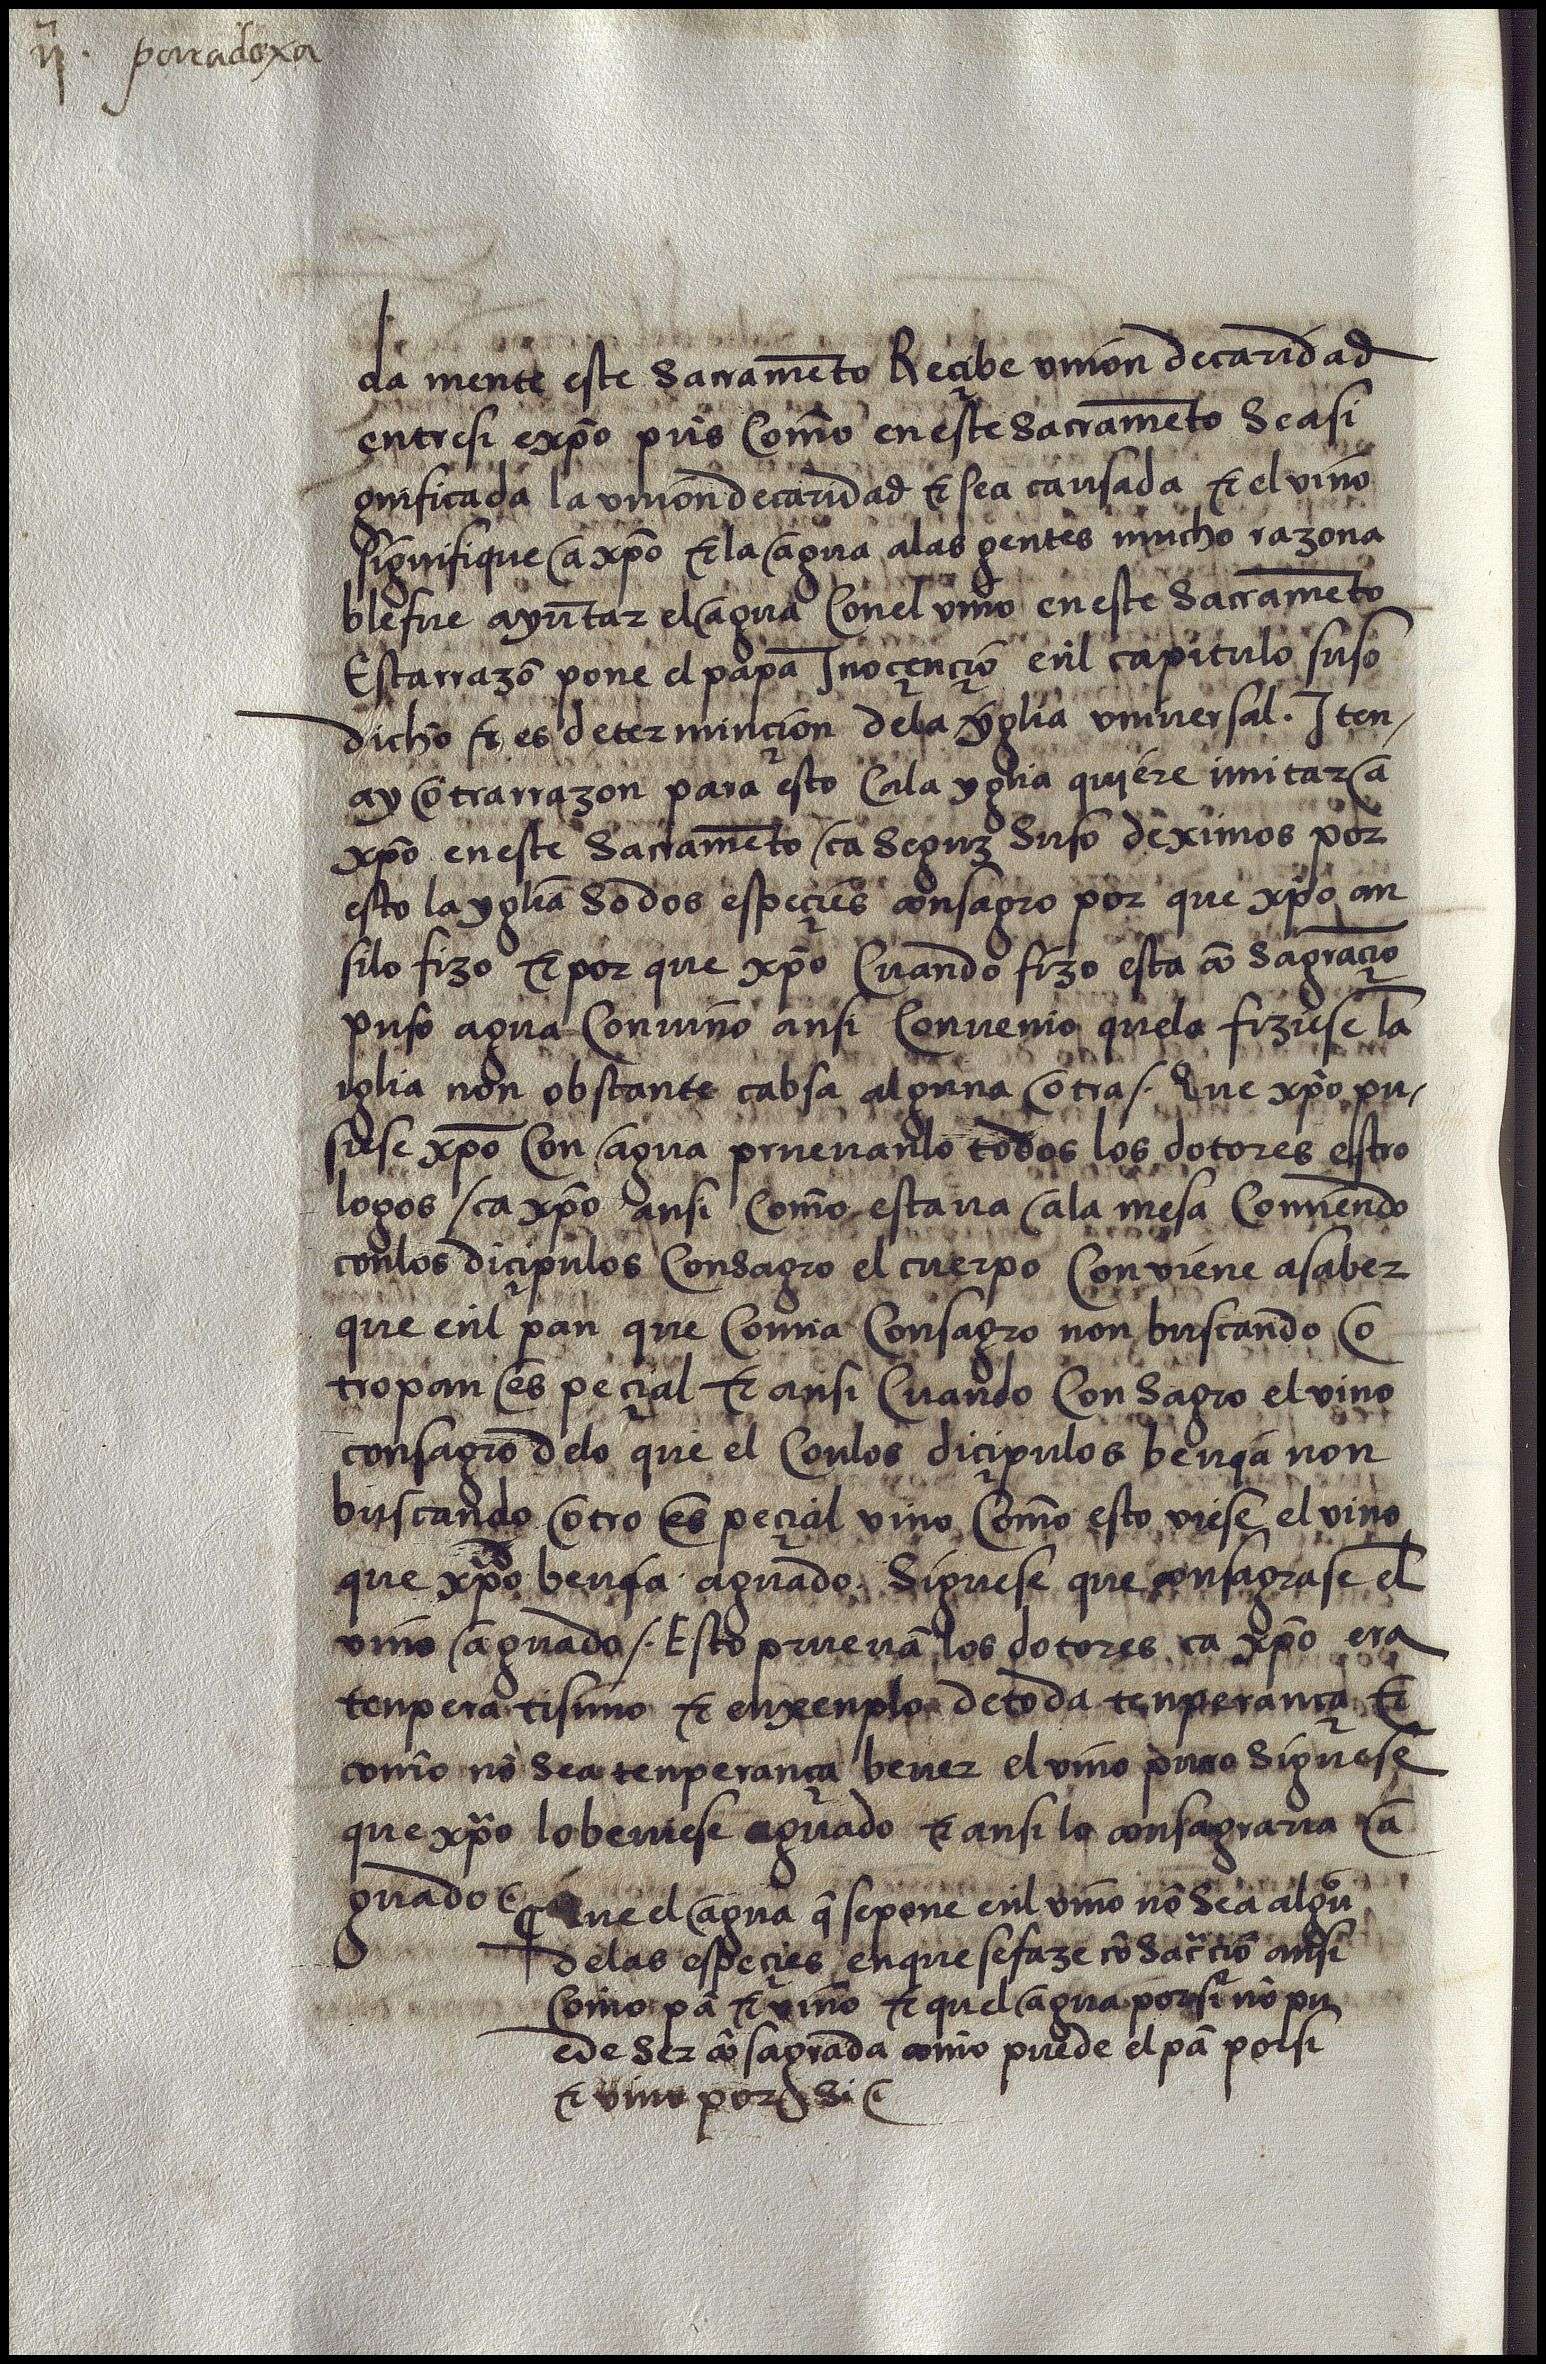 ij. paradoxa
da mente este Sacramẽto Reçibe vnion decaridad
entresi exp̃o pũs Com̃o eneste Sacramẽto Seasi
gnificada la vniondecaridad & sea causada & el vino
significque a xp̃o & la agua alas gentes mucho razona
blefue ayũtar el agua Conel vino eneste Sacramẽto
Estarrazõ pone el papa Inoçençiõ enl capitulo suso
dicho & es determinçion dela yglia vniuersal. Iten/
ay otrarrazon para esto Cala yglia quiere imitar a
xp̃o eneste Sacramẽto /ca Segũ Suso deximos por
esto la yglia So dos espeçies consagro por que xp̃o an
silo fizo & por que xp̃o Cuando fizo esta cõ Sagraçiõ
puso agua Conuino ansi Conuenio quelo fiziese la
iglia non obstante cabsa alguna otra/. Que xp̃o pu/
siese xp̃o Con agua prueuanlo todos los dotores estro
logos /ca xp̃o ansi Com̃o estaua ala mesa Comiendo
conlos diçipulos Consagro el cuerpo Conviene asaber
que enl pan que Comia Consagro non buscando o
tropan es peçial & ansi Cuando Con Sagro el vino
consagro delo que el Conlos diçipulos beuia non
buscando otro es peçial vino Com̃o esto viese el vino
que xp̃o beuia aguado. Siguese que consagrase el
vino aguado/. Esto prueuã los dotores ca xp̃o era
tenpera tisimo & enxenplo detoda tenperança &
com̃o nõ Sea tenperança beuer el vino puro Siguese
que xp̃o lobeuiese aguado & ansi lo consagraria a
guado
¶ Que el agua q̃ sepone enl vino nõ Sea algũ
delas espeçies enquesefaze cõ Sac̃tiõ ansi
Como pã & vino & quel agua porsi nõ pu
ede Ser cõ sagrada com̃o puede el pã porsi
& vino por Si